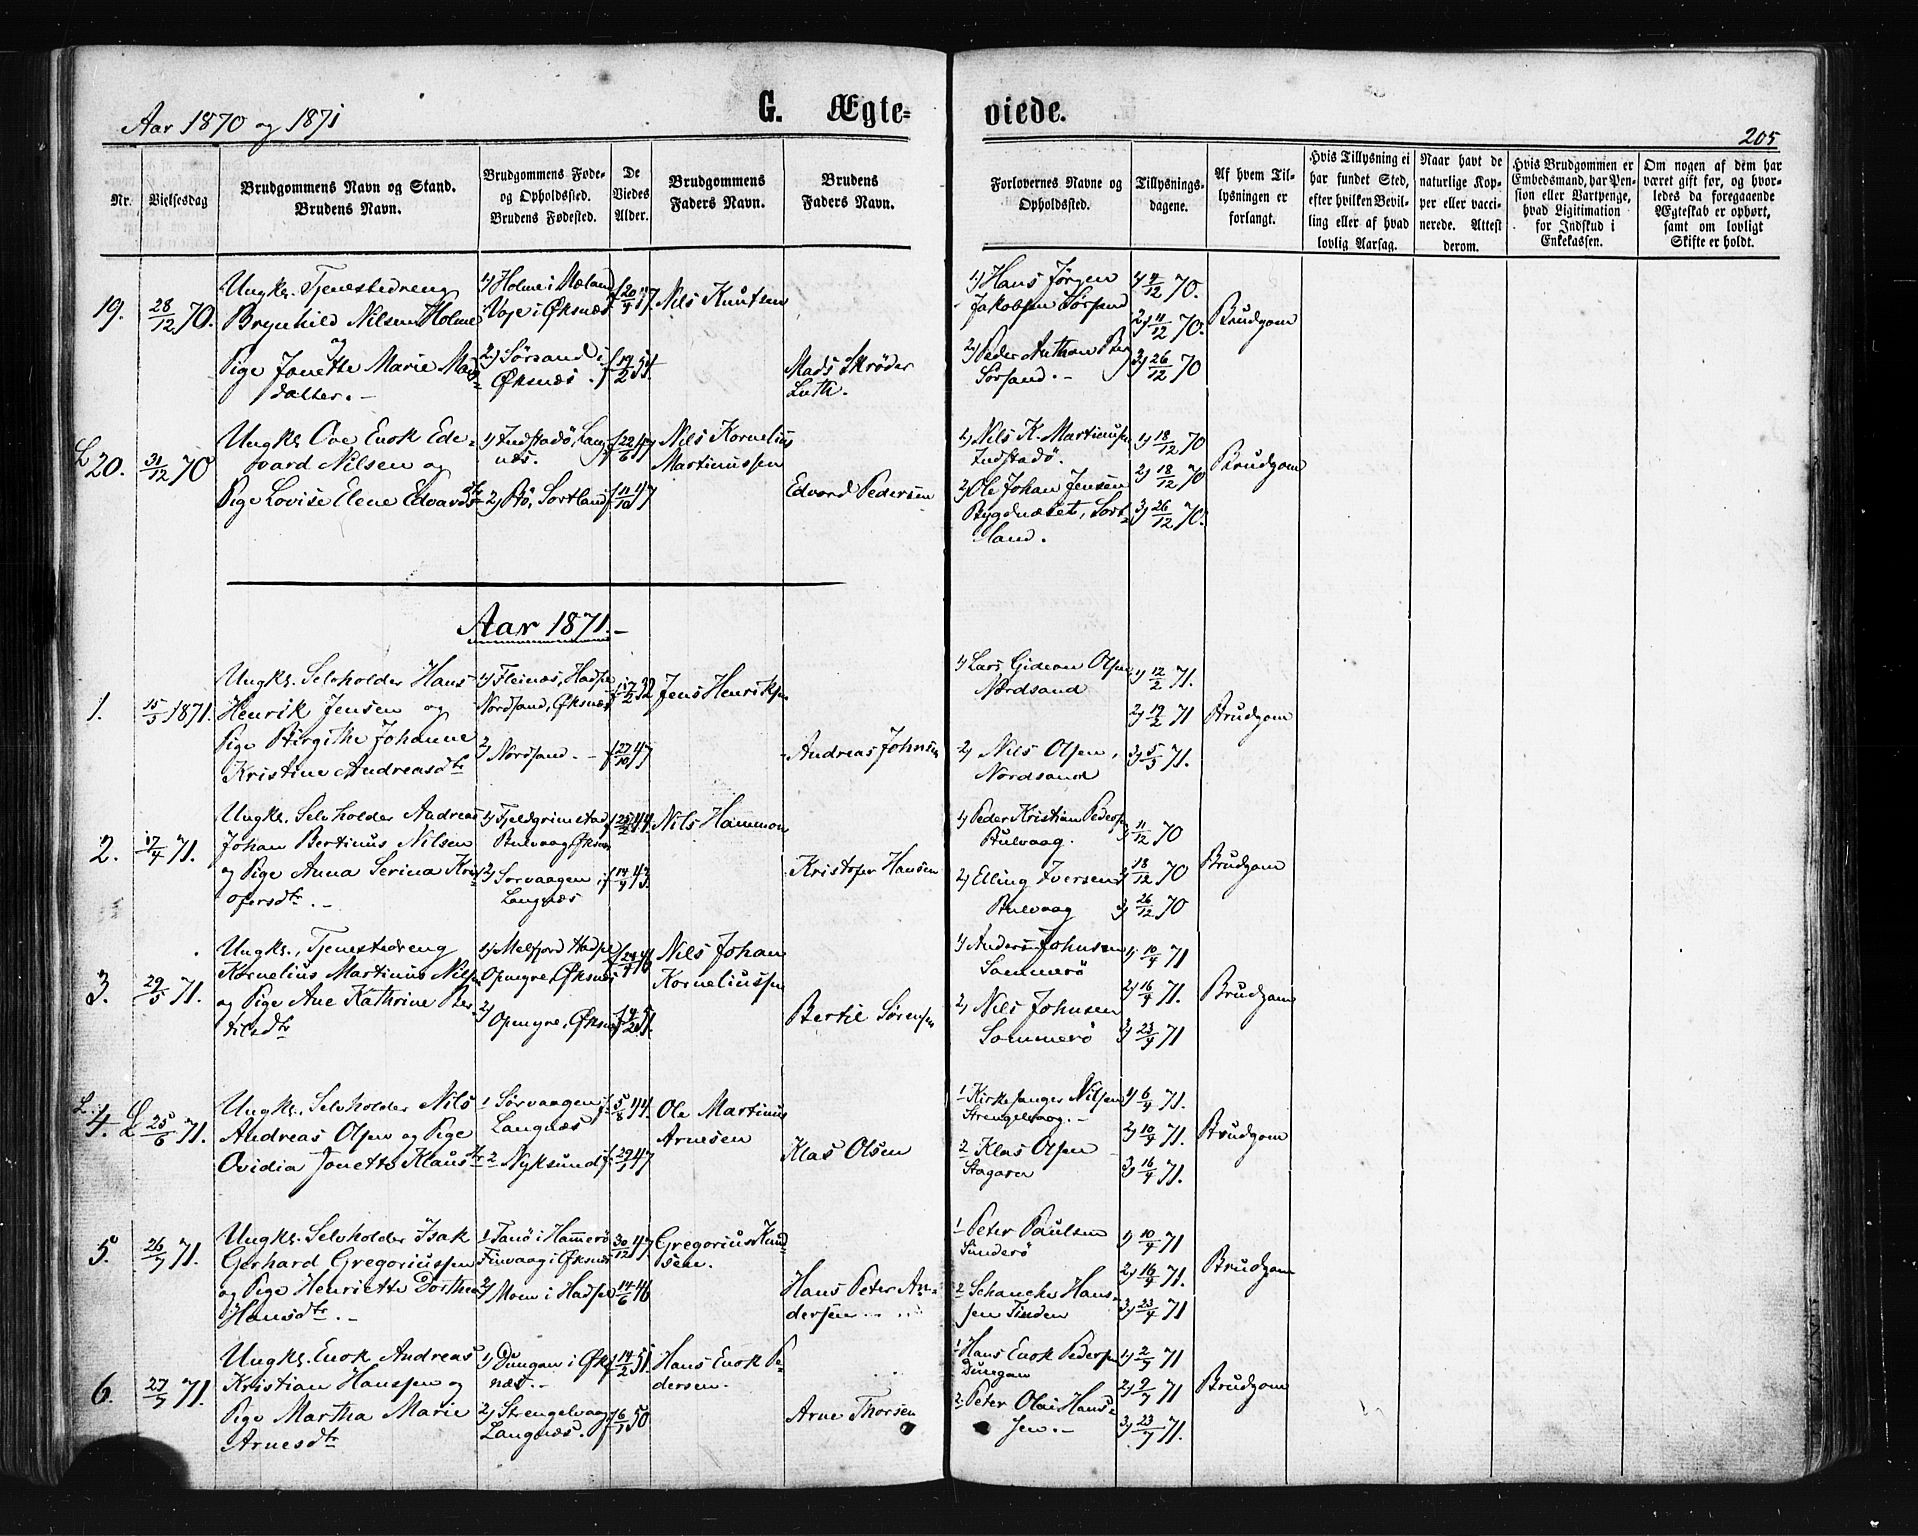 Aar 1870 og 1871
G. Ægte-
viede.
205
Nr.
Vielsesdag
Brudgommens Navn og Stand.
Brudens Navn.
Brudgommens Føde-
og Opholdssted.
Brudens Fødested.
De
Viedes
Alder.
Brudgommens
Faders Navn.
Brudens
Faders Navn.
Forlovernes Navne og
Opholdssted.
Tillysnings-
dagene.
Af hvem Til-
lysningen er
forlangt.
Hvis Tillysning ei
har fundet Sted,
efter hvilken Bevil-
ling eller af hvad
lovlig Aarsag.
Naar havt de
naturlige Kop-
per eller vacci-
nerede. Attest
derom.
Hvis Brudgommen er
Embedsmand, har Pen-
sion eller Vartpenge,
hvad Ligitimation
for Indskud i
Enkekassen.
Om nogen af dem har
været gift før, og hvor-
ledes da foregaaende
Ægteskab er ophørt,
samt om lovligt
Skifte er holdt.
19.
28/12 70.
Ungk. Tjenestedreng
Brynhild Nilsen Holme
og
Pige Janette Marie Mads
datter.
1) Holme i Mæland
Vaje i Øksnæs
2) Sørsand i
Øksnæs
f 20/4 47.
f 19/2 54.
Nils Knutsen
Mads Skrøder
Luth.
1) Hans Jørgen
Jakobsen Sørsand
2) Peder Anthon
Sørsand.
1) 4/12 70.
2) 11/12 70.
3) 26/12 70
Brudgom
L 20.
31/12 70
Ungk. Ove Enok Ede-
vard Nilsen og
Pige Lovise Elene Edvardsdtr
1) Indstadö, Lang-
næs.
2) Bö, Sortland
f 22/6 47
f 11/10 47
Nils Kornelius
Martinussen
Edvard Pedersen
1) Nils K. Martinussen
Indstadö.
2) Ole Johan Jensen
Bygdnæset, Sort-
land.
1) 18/12 70
2) 18/12 70
3) 26/12 70.
Brudgom
Aar 1871.
1.
15/5 1871.
Ungk. Selvholder Hans
Henrik Jensen og
Pige Birgithe Johanne
Kristine Andreasdtr
1) Fleinæs, Hadsel
Nordsand, Øksnæs
2) Nordsand.
f 17/2 32
f 27/10 47
Jens Henriksen
Andreas Johnsen
1) Lars Gidean Olsen
Nordsand
2) Nils Olsen,
Nordsand
1) 12/2 71.
2) 19/2 71
3) 5/5 71.
Brudgom
2.
17/4 71.
Ungk. Selvholder Andreas
Johan Bertinus Nilsen
og Pige Anna Serina Krist-
ofersdtr.
1) Fjeldgrimstad
Bulvaag, Øksnæs
2) Sørvaagen i
Langnæs
f 25/2 44.
f 14/9 43.
Nils Hammon
Kristofer Hansen
1) Peder Kristian Pedersen
Bulvaag.
2) Elling Iversen
Bulvaag
1) 11/12 70
2) 18/12 70
3) 26/12 70
Brudgom
3.
29/5 71.
Ungk., Tjenestedreng
Kornelius Martinus Nilsen
og Pige Ane Kathrine Ber-
tilsdtr
1) Melfjord Hadsel
Opmyre, Øksnæs
2)
Opmyre, Øksnæs
Nils Johan
Korneliussen
Bertil Sørensen
1) Anders Johnsen
Sommerö
2) Nils Johnsen
Sommerö
1) 10/4 71
2) 16/4 71.
3) 23/4 71
Brudgom
L. 4. L
25/6 71.
Ungk. Selvholder Nils
Andreas Olsen og Pige
Ovidia Janette Klausdtr
1 Sörvaagen i
Langnæs
2 Nyksund
f 5/8 44.
f 29/1 47
Ole Martinus
Arnesen
Klas Olsen
1 Kirkesanger Nilsen
Strengelvaag.
2 Klas Olsen
Stagaren
1) 6/4 71.
2) 10/4 71.
3) 16/4 71.
Brudgom
5.
26/7 71.
Ungk. Selvholder Isak
Gerhard Gregoriussen
og Pige Henriette Dorthea
Hansdtr.
1 Tanö i Hammerö
Finvaag i Øksnæs
2) Moen i Hadsel
30/12 47.
14/6 46
Gregorius Knud-
sen.
Hans Peter An-
dersen
1 Peter Paulsen
Tinderö
2 Schanche Hans-
sen Tinden
1) 10/4 71
2) 16/4 71.
3) 23/4 71
Brudgom
6.
27/7 71.
Ungk. Enok Andreas
Kristian Hanssen og
Pige Martha Marie
Arnesdtr
1) Dungan i Øks-
næs.
2) Strengelvaag
Langnæs.
f 14/2 51.
f 6/1 50
Hans Enok Pe-
dersen.
Arne Thorsen
1 Hans Enok Pedersen
Dungan
2 Peter Olai Hans-
sen.
1) 2/7 71
2) 9/7 71
3) 23/7 71.
Brudgom